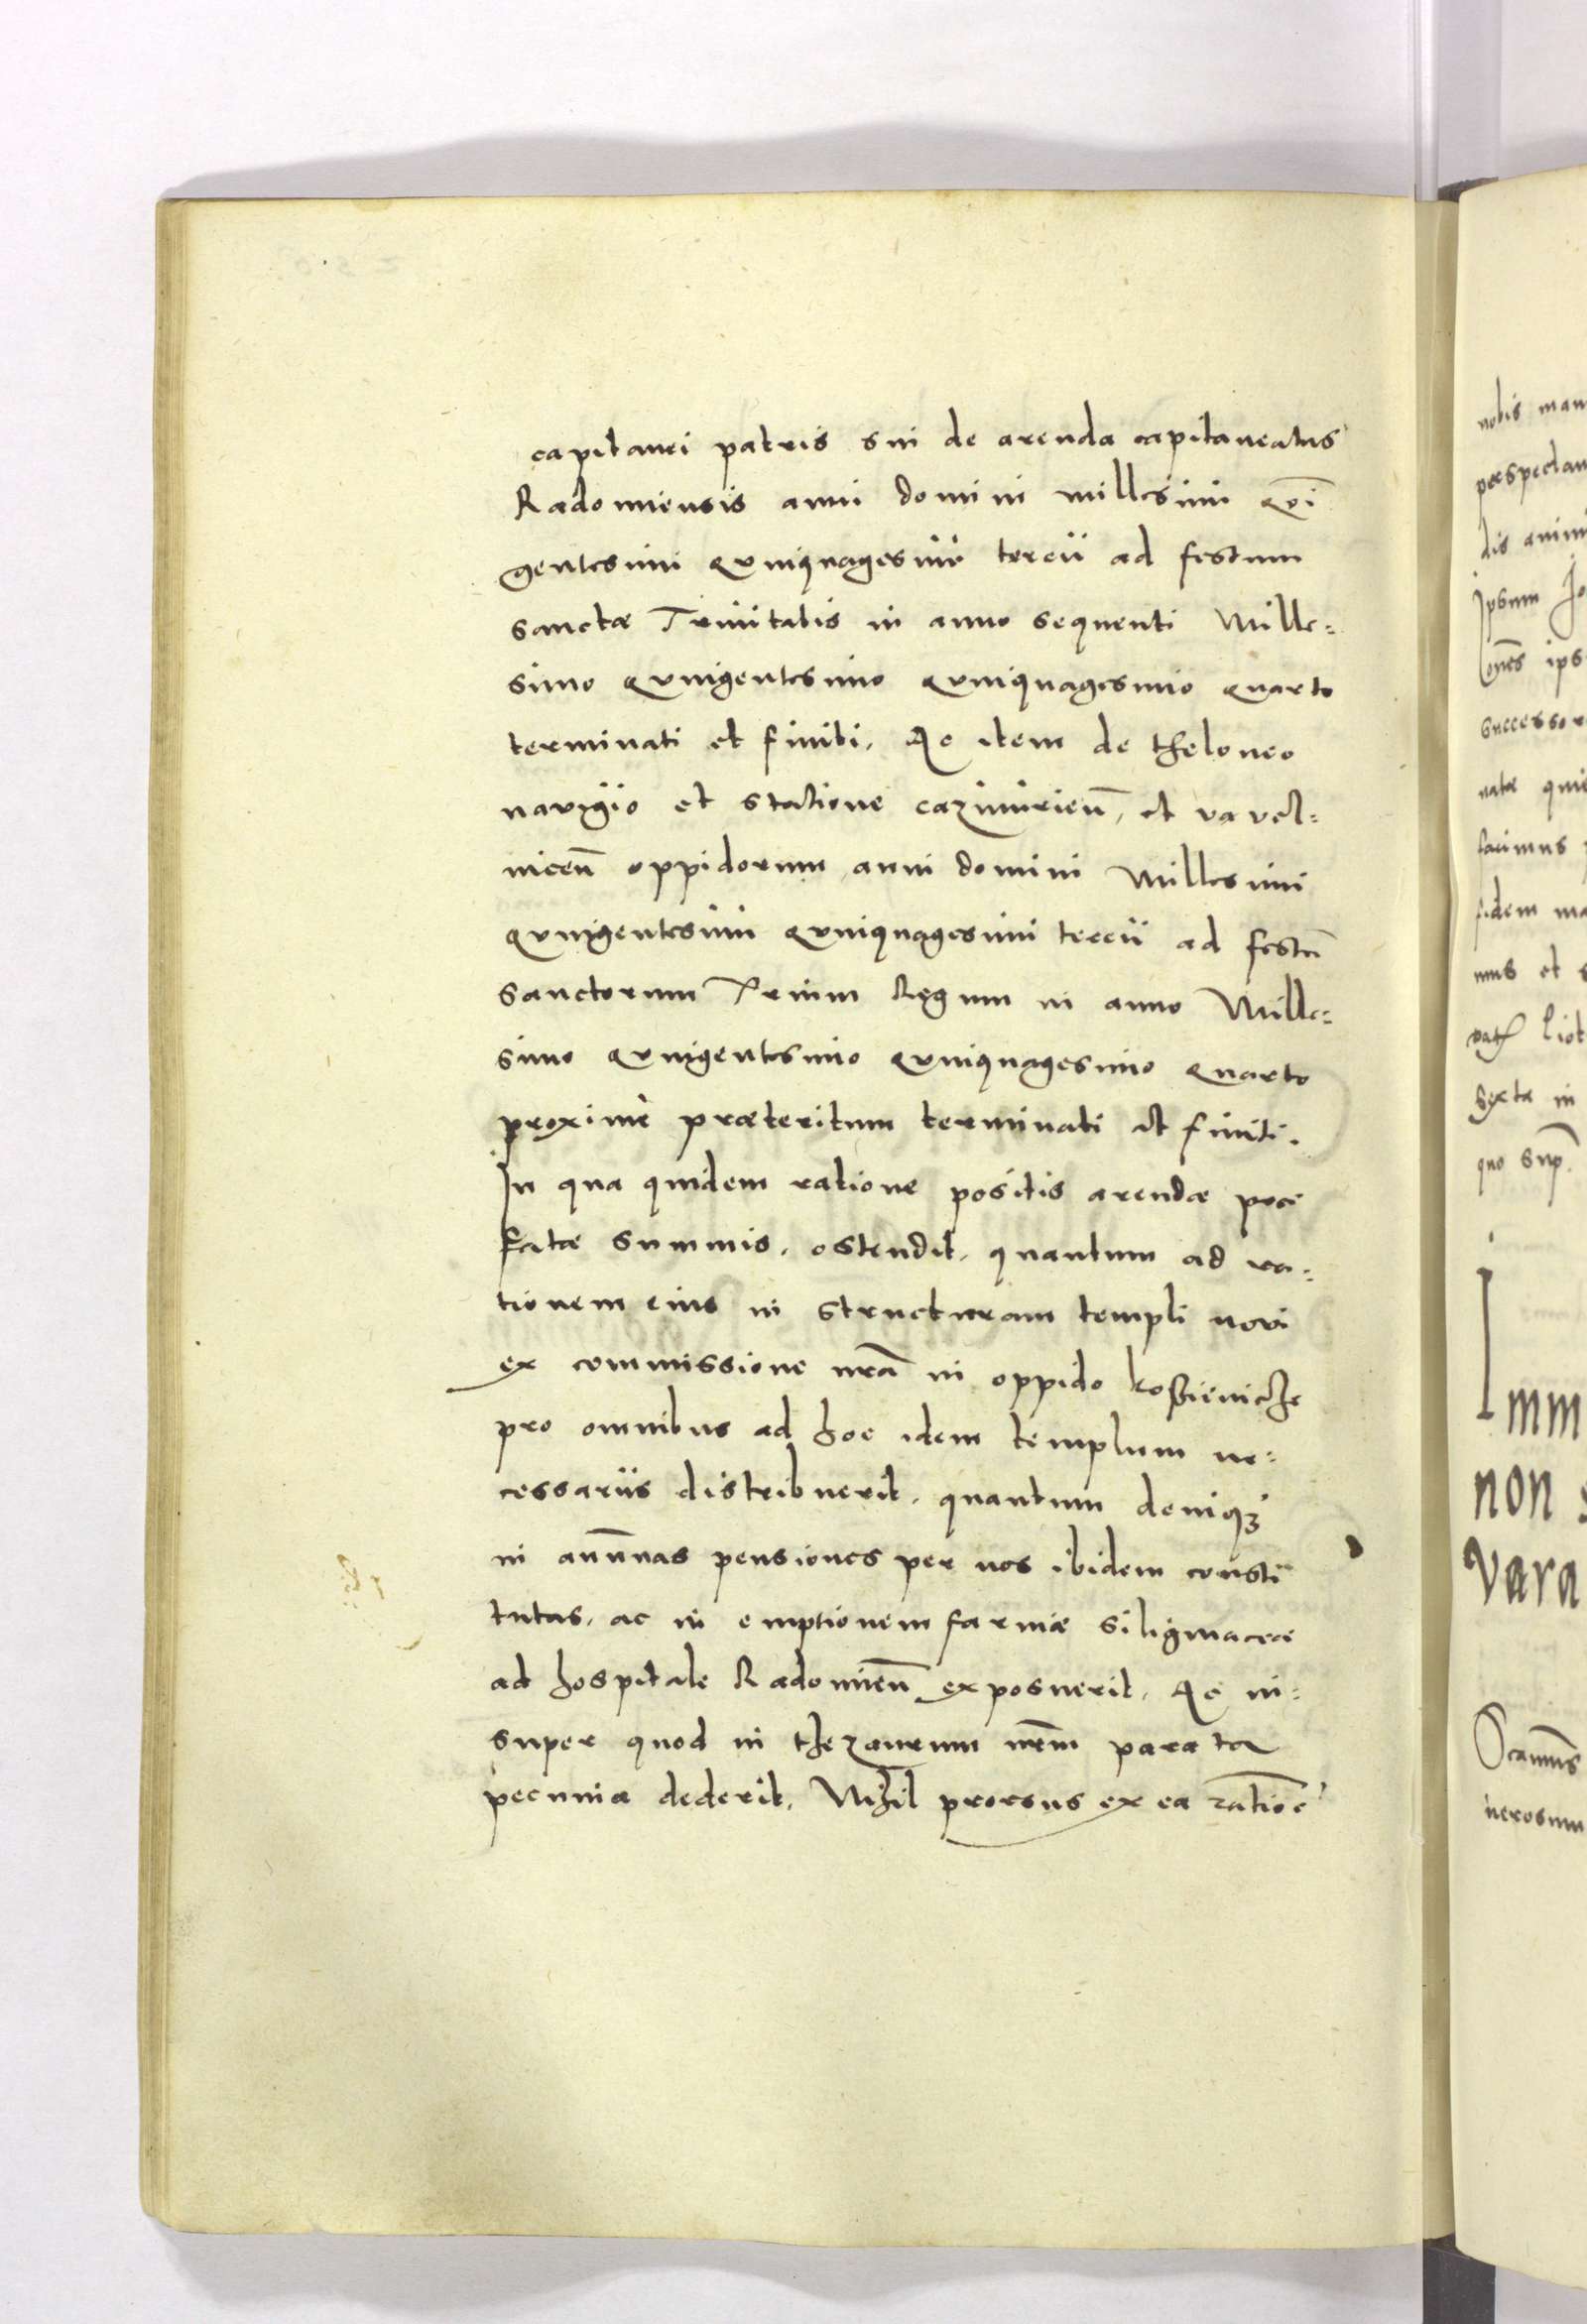 capitanei patris sui de arenda capitaneatus
Radomiensis anni domini millesimi qui
gentesimi quinquagesimi tercii ad festum
sanctæ Trinitatis in anno sequenti Mille=
simo quingentesimo quinquagesimo quarto
terminati et finiti, Ac item de theloneo
navigio et statione cazimirien̄, et vavel=
nicen̄ oppidorum anni domini Millesimi
quingentesimi quinquagesimi tercii ad festū
sanctorum Trium Regum in anno Mille=
simo quingentesimo quinquagesimo quarto
proximè præteritum terminati et finiti.
In qua quidem ratione positis arendæ præ
fatæ summis, ostendit, quantum ad ra=
tionem eius in structuram templi novi
ex commissione nrā in oppido koßieniche
pro omnibus ad hoc idem templum ne=
cessariis distribuerit, quantum deniqȝ
in annuas pensiones per nos ibidem consti
tutas, ac in emptionem farinæ siligineaceæ
ad hospitale Radomien̄ exposuerit, Ac in=
super quod in thezaurum nr̄m parata
pecunia dederit, Nihil prorsus ex ea ratiōe
nobis man
perspectam
dis anim
Ipsum Jo
ones ips
successor
natæ qui
facimus
fidem ma
mus et s
Sexta in
quo sup.
Imm
non s
vara
nerosum